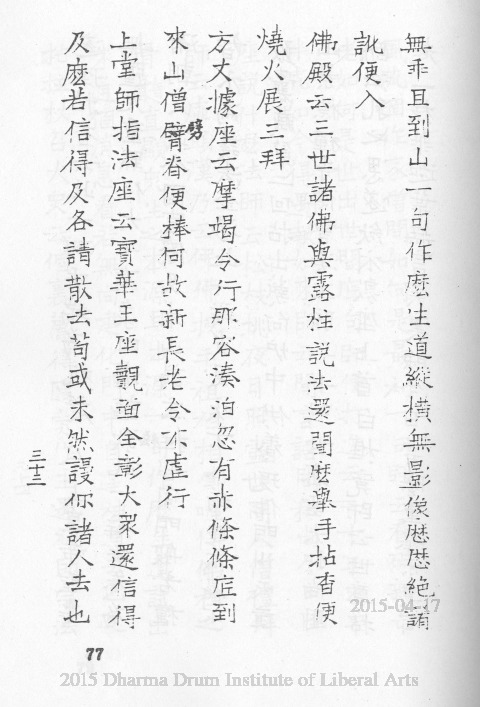 無乖且到山一句作麽生道縱橫無影像歷歷絕誵
訛便入
佛殿云三世諸佛與露柱說法還聞麽舉手拈香便
燒火展三拜
方丈據座云摩竭令行那容湊泊忽有赤條條底到
來山僧臂脊便棒何故新長老令不虛行
劈
上堂師指法座云寶華王座覿面全彰大衆還信得
及麽若信得及各請散去苟或未然謾你諸人去也
三十三
77
2015-04-17
2015 Dharma Drum Institute of Liberal Arts